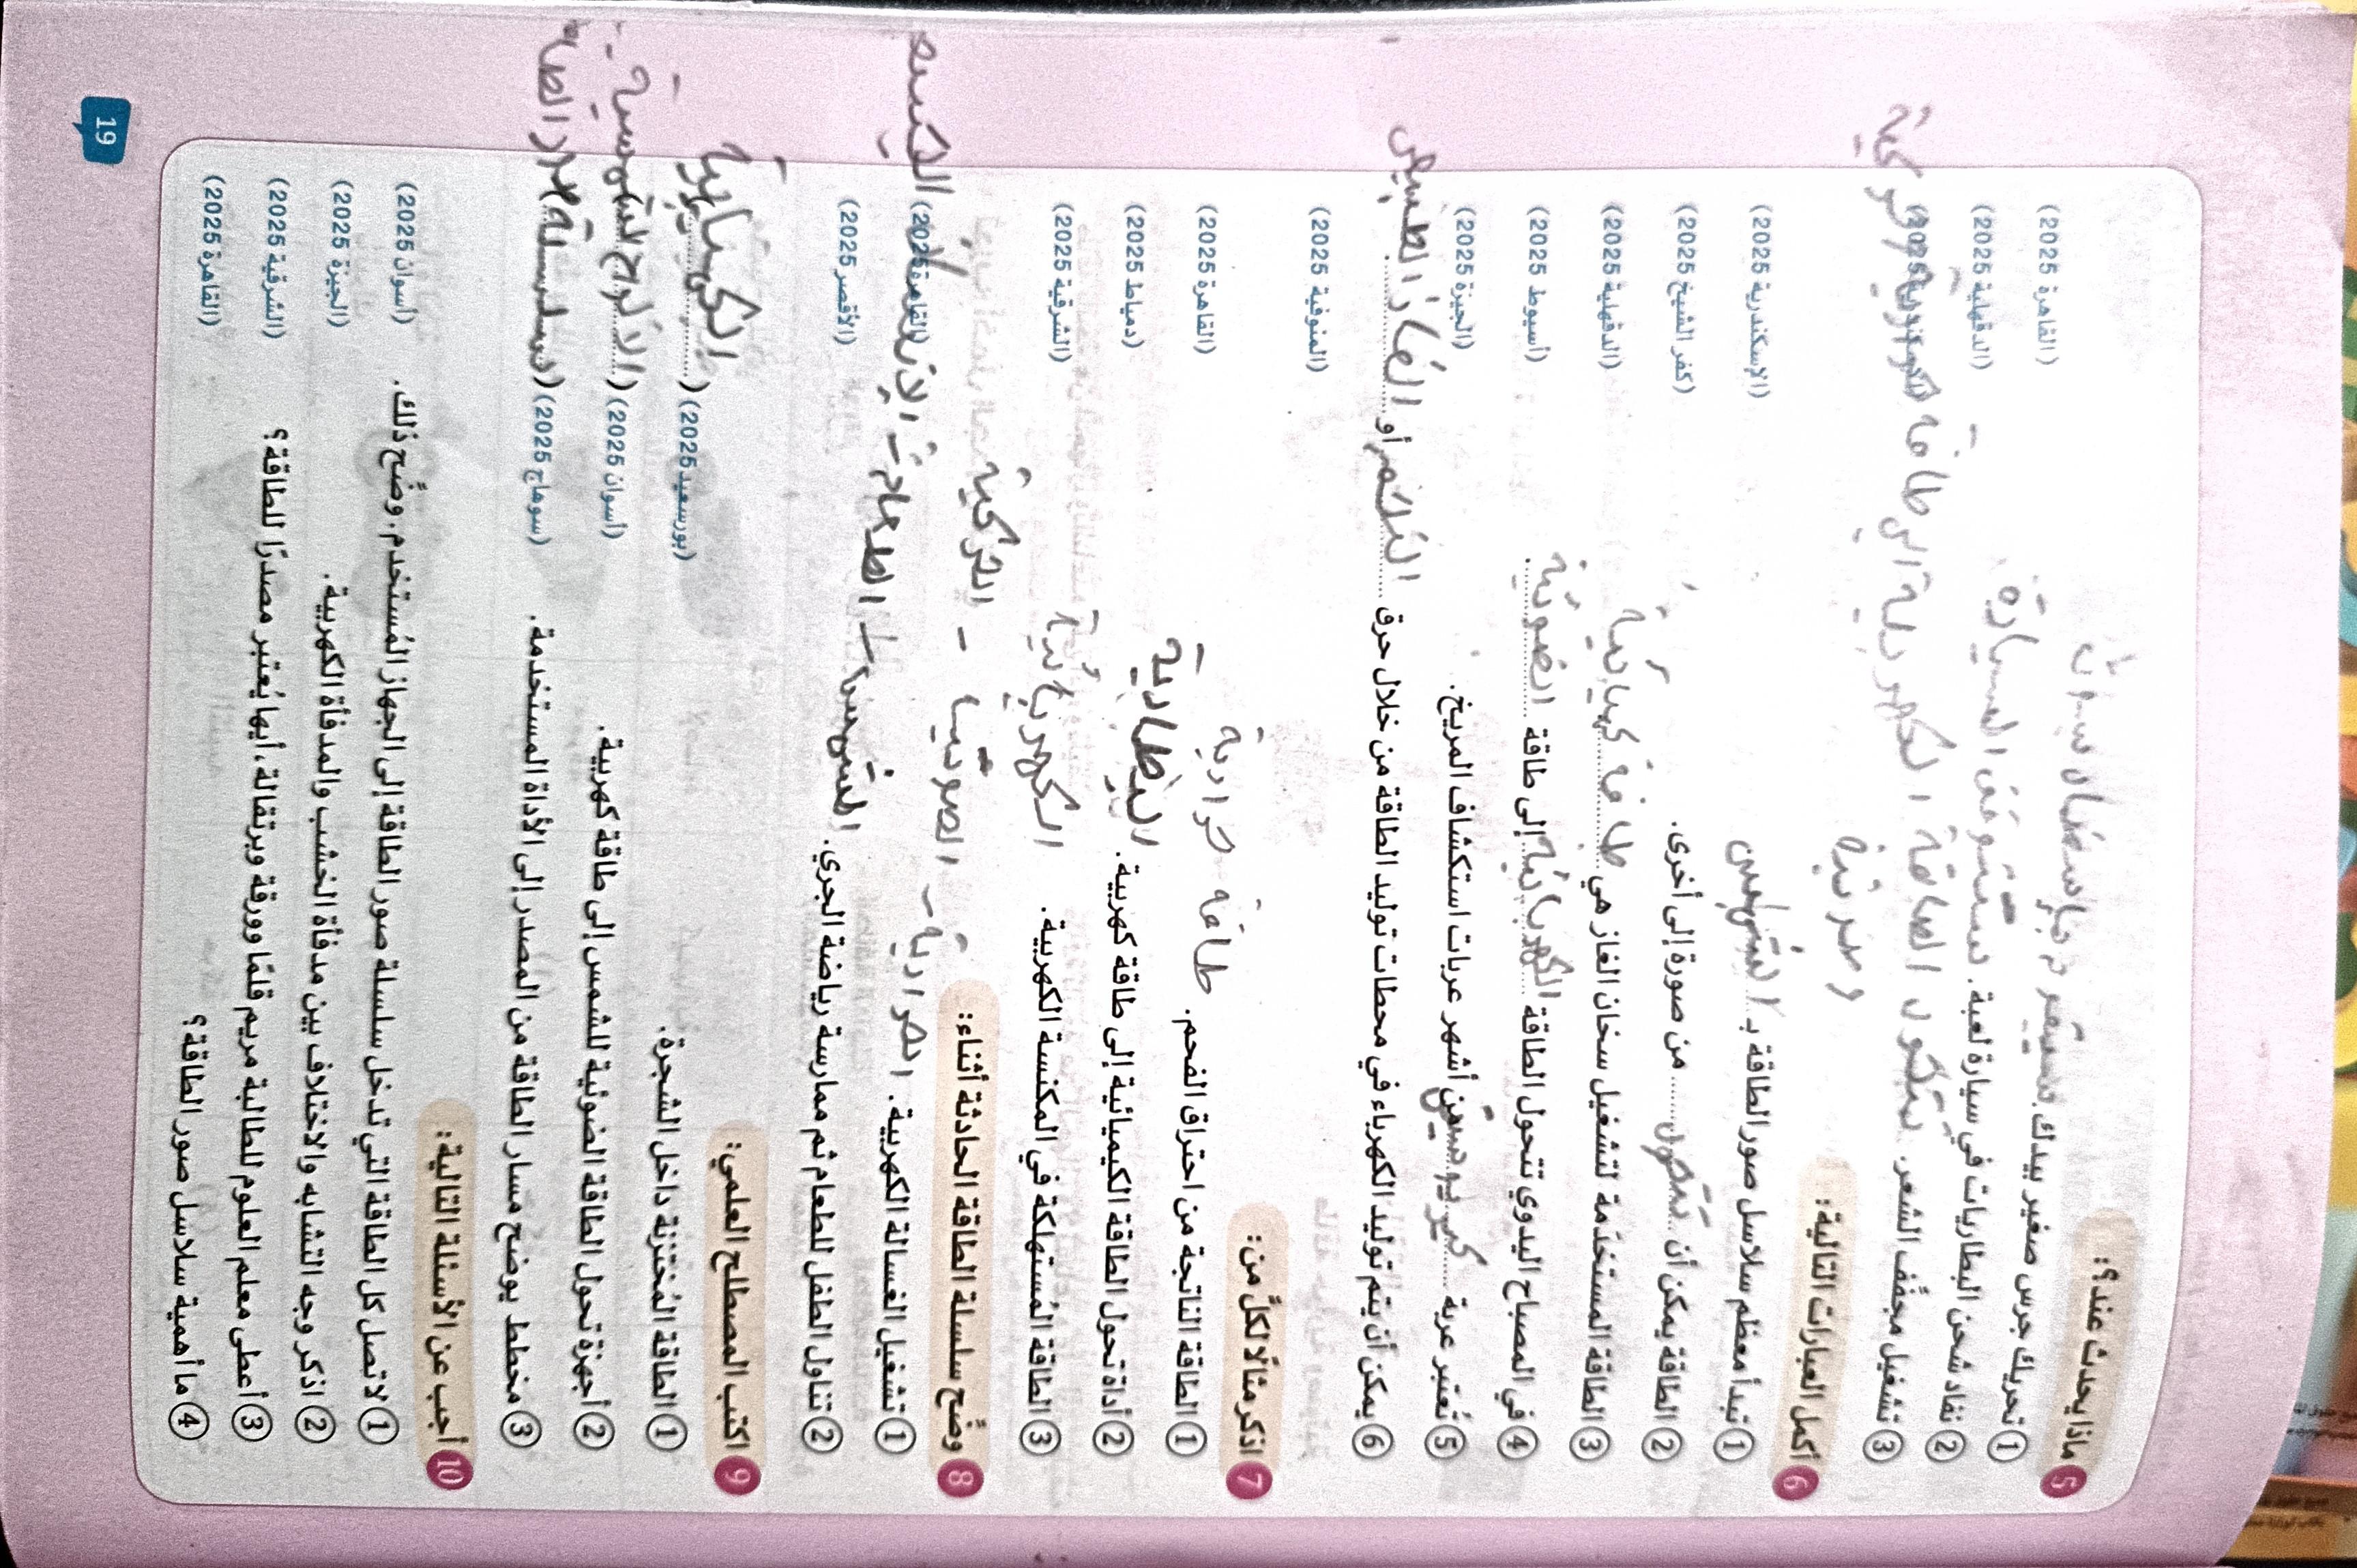 5 ماذا يحدث عند؟:
① تحريك جرس صغير بيدك. (القاهرة 2025)
② نفاد شحن البطاريات في سيارة لعبة. ستتوقف السيارة (الدقهلية 2025)
③ تشغيل مجفف الشعر. ستحول الطاقة الكهربية الى طاقة
6 أكمل العبارات التالية:
① تبدأ معظم سلاسل صور الطاقة بـ الشمس (الإسكندرية 2025)
② الطاقة يمكن أن تتحول من صورة إلى أخرى. (كفر الشيخ 2025)
③ الطاقة المستخدمة لتشغيل سخان الغاز هي طاقة كيميائية (الدقهلية 2025)
④ في المصباح اليدوي تتحول الطاقة الكهربائية إلى طاقة الضوئية. (أسيوط 2025)
⑤ تُعتبر عربة كيريوسيتي من أشهر عربات استكشاف المريخ. (الجيزة 2025)
⑥ يمكن أن يتم توليد الكهرباء في محطات توليد الطاقة من خلال حرق الفحم أو الغاز الطبيعي. (المنوفية 2025)
7 اذكر مثالًا لكلٍّ من:
① الطاقة الناتجة من احتراق الفحم. طاقة حرارية (القاهرة 2025)
② أداة تحول الطاقة الكيميائية إلى طاقة كهربية. البطارية (دمياط 2025)
③ الطاقة المُستهلكة في المكنسة الكهربية. الكهربائية (الشرقية 2025)
8 وضِّح سلسلة الطاقة الحادثة أثناء: الصوتية - الحركية
① تشغيل الغسالة الكهربية. الحرارية - (القاهرة 2025)
② تناول الطفل للطعام ثم ممارسة رياضة الجري. الشمس الطعام (الأقصر 2025)
9 اكتب المصطلح العلمي:
① الطاقة المُختزنة داخل الشجرة. (بورسعيد 2025) (الكيميائية)
② أجهزة تحول الطاقة الضوئية للشمس إلى طاقة كهربية. (أسوان 2025) (الألواح الشمسية)
③ مخطط يوضح مسار الطاقة من المصدر إلى الأداة المستخدمة. (سوهاج 2025) (سلسلة
10 أجب عن الأسئلة التالية:
① لا تصل كل الطاقة التي تدخل سلسلة صور الطاقة إلى الجهاز المُستخدم. وضِّح ذلك. (أسوان 2025)
② اذكر وجه التشابه والاختلاف بين مدفأة الخشب والمدفأة الكهربية. (الجيزة 2025)
③ أعطى معلم العلوم للطالبة مريم قلمًا وورقة وبرتقالة، أيها يُعتبر مصدرًا للطاقة؟ (الشرقية 2025)
④ ما أهمية سلاسل صور الطاقة؟ (القاهرة 2025)
19